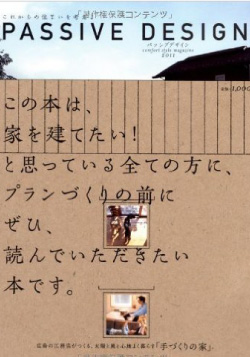 これからの住まいを考える
「著作権保護コンテンツ」
PASSIVE DESIGN
パッシブデザイン
comfort style magazine
2011
この本は、
家を建てたい！
と思っている全ての方に、
プランづくりの前に
ぜひ、
読んでいただきたい
本です。
「手づくりの家」